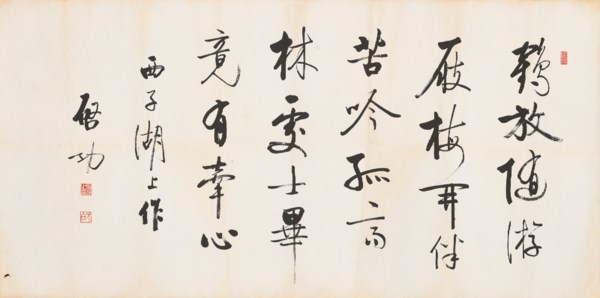 鶴放隨游
屐梅開伴
苦吟孤高
林處士畢
竟有牽心
西子湖上作
啓功